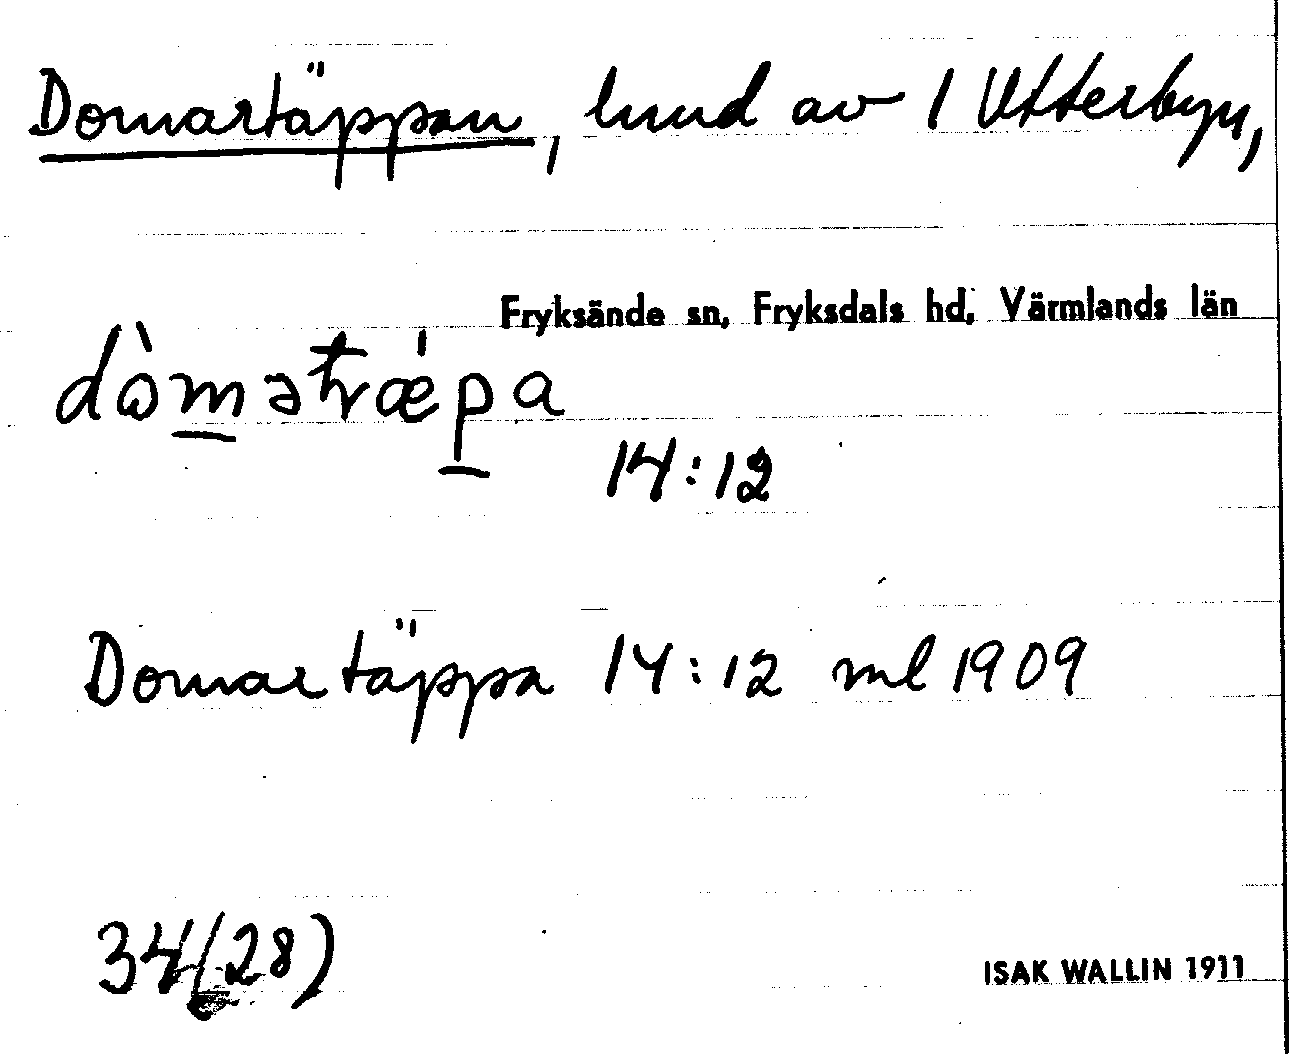 Domartäppan, lund av 1 Utterbyn,
Fryksände sn, Fryksdals hd, Värmlands län
14:12
Domartäppa 14:12 ml 1909
34(28)
ISAK WALLIN 1911